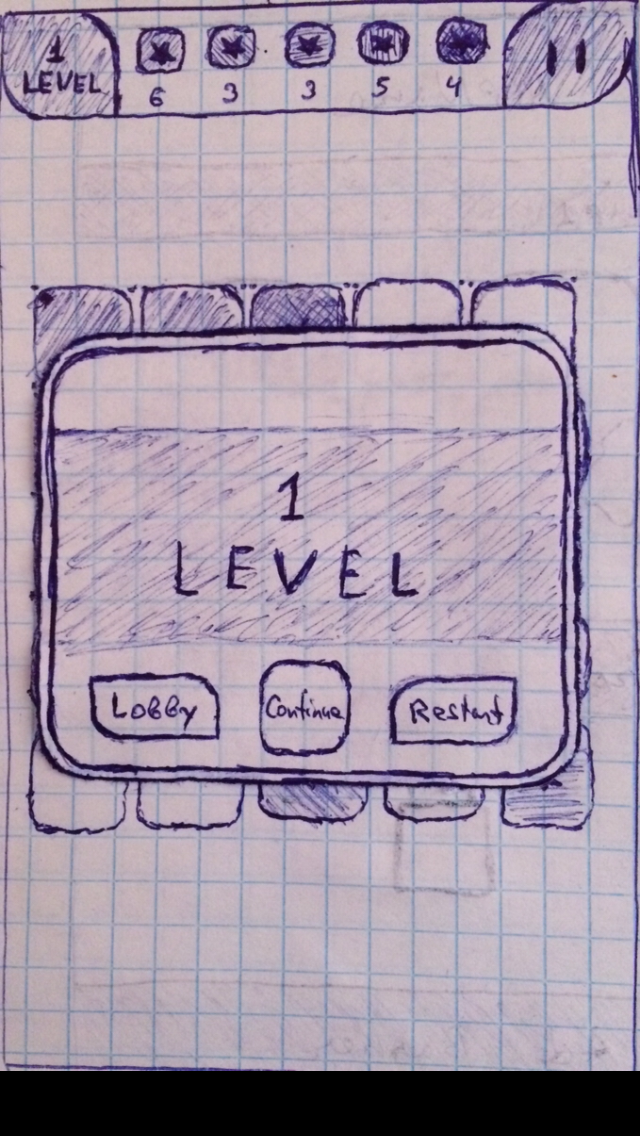 1
LEVEL
6 3 3 5 4
1
LEVEL
Lobby Continue Restart